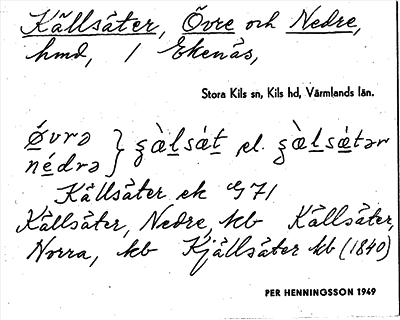 Källsäter, Övre och Nedre,
hmd, / Ekenäs,
Stora Kils sn, Kils hd, Värmlands län.
Övrə } gàlsät el. gàlsätər
nédrə
Källsäter ek G 71
Källsäter, Nedre, kb Källsäter,
Norra, kb Kjällsäter kb (1840)
PER HENNINGSSON 1949